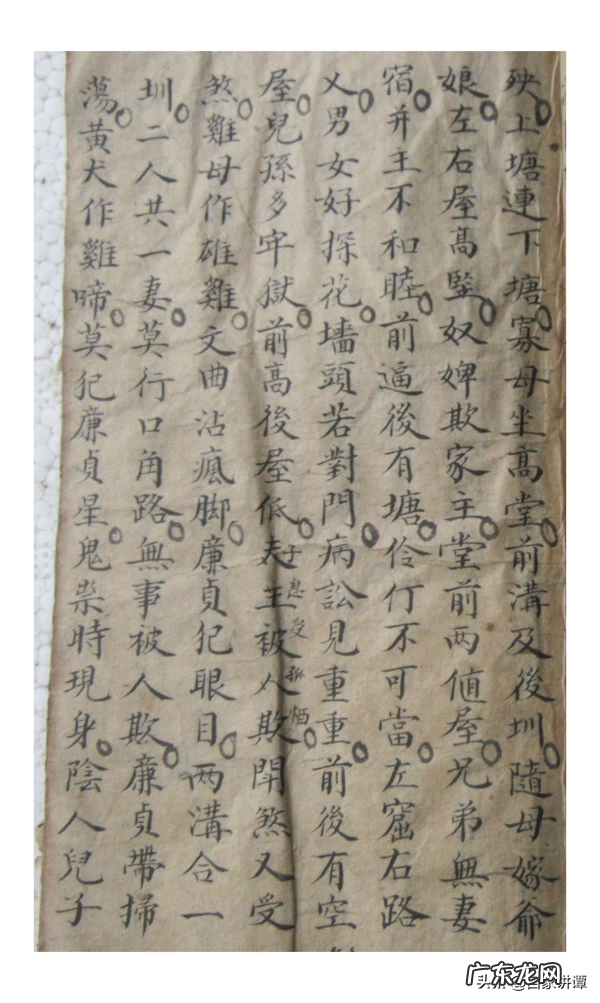 殃上塘連下塘寡母坐高堂前溝及後圳隨母嫁爺
娘左右屋高竪奴婢欺家主堂前两値屋兄弟無妻
宿并主不和睦前逼後有塘伶仃不可當左窟右路
乂男女好探花墻頭若對門病訟見重重前後有空
屋兒孫多牢獄前高後屋低夫主被人欺開煞又受
子息受
煞雞母作雄雞文曲沾瘋脚廉貞犯眼目两溝合一
圳二人共一妻莫行口角路無事被人欺廉貞帶掃
蕩黄犬作雞啼莫犯廉貞星鬼祟時現身陰人兒子
头条 @百家讲谭
广东龙网